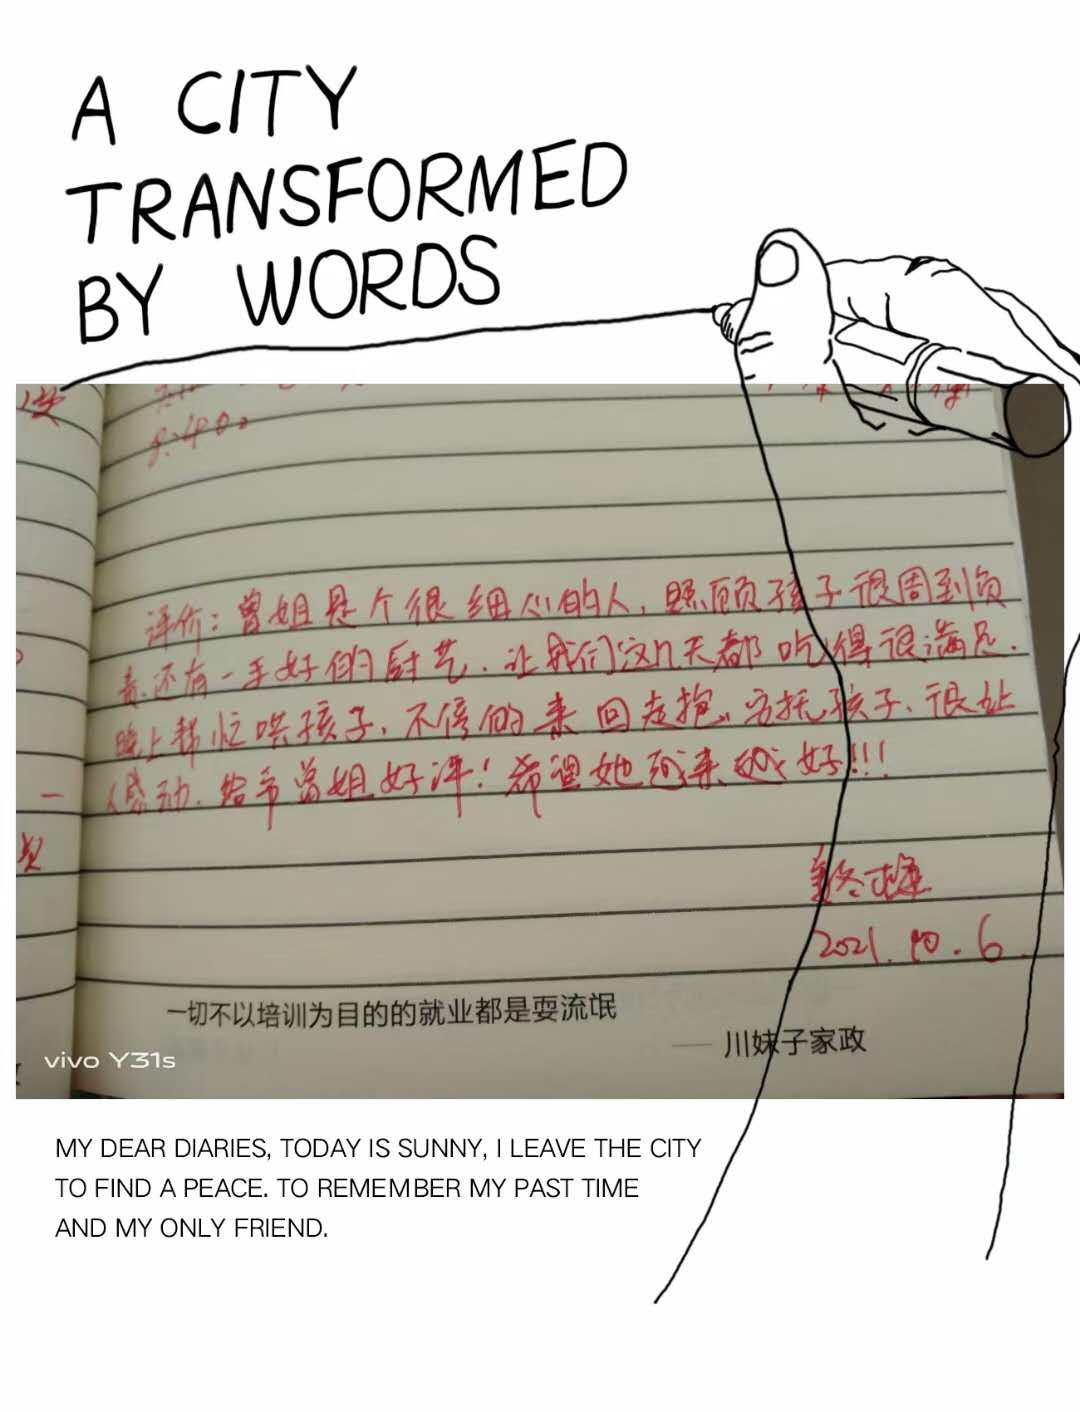 A CITY
TRANSFORMED
BY WORDS
8:40
评价：曾姐是个很细心的人，照顾孩子很周到负
责、还有一手好的厨艺、让我们这几天都吃得很满足.
晚上帮忙哄孩子，不停的来回走抱、安抚孩子、很让
人感动. 给予曾姐好评！希望她越来越好!!!
冬梅
2021.10.6
一切不以培训为目的的就业都是耍流氓
—— 川妹子家政
vivo Y31s
MY DEAR DIARIES, TODAY IS SUNNY, I LEAVE THE CITY
TO FIND A PEACE. TO REMEMBER MY PAST TIME
AND MY ONLY FRIEND.